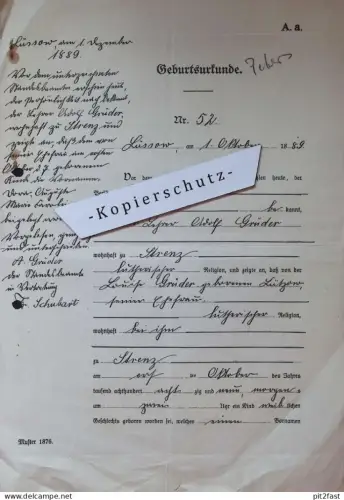 A. a.
Lüssow, am 1. Dezember
1889.
Vor dem unterzeichneten
Standesbeamten erschien heute,
der Persönlichkeit nach bekannt,
der Lehrer Adolf Grüder,
wohnhaft zu Strenz und
zeigte an, daß dem von
Ehefrau am ersten
Oktober d. J. geborenen
Kinde die Vornamen
Dora Auguste
Maria
beigelegt
Vorgelesen, genehmigt
und unterschrieben
A. Grüder
Der Standesbeamte
in Vertretung
F. Schubart
Geburtsurkunde.
Nr. 52
Lüssow, am 1. Oktober 1889
Vor dem heute, der
Persönlichkeit nach
bekannt,
der Lehrer Adolf Grüder
wohnhaft zu Strenz
lutherischer Religion, und zeigte an, daß von der
Louise Grüder geborenen Lützow
seiner Ehefrau
lutherischer Religion,
wohnhaft bei ihm
zu Strenz
am Oktober des Jahres
tausend achthundert achtzig und neun, morgens
um zwei Uhr ein Kind weiblichen
Geschlechts geboren worden sei, welches einen Vornamen
Muster 1876.
-Kopierschutz-
www.delcampe.net
pit2fast